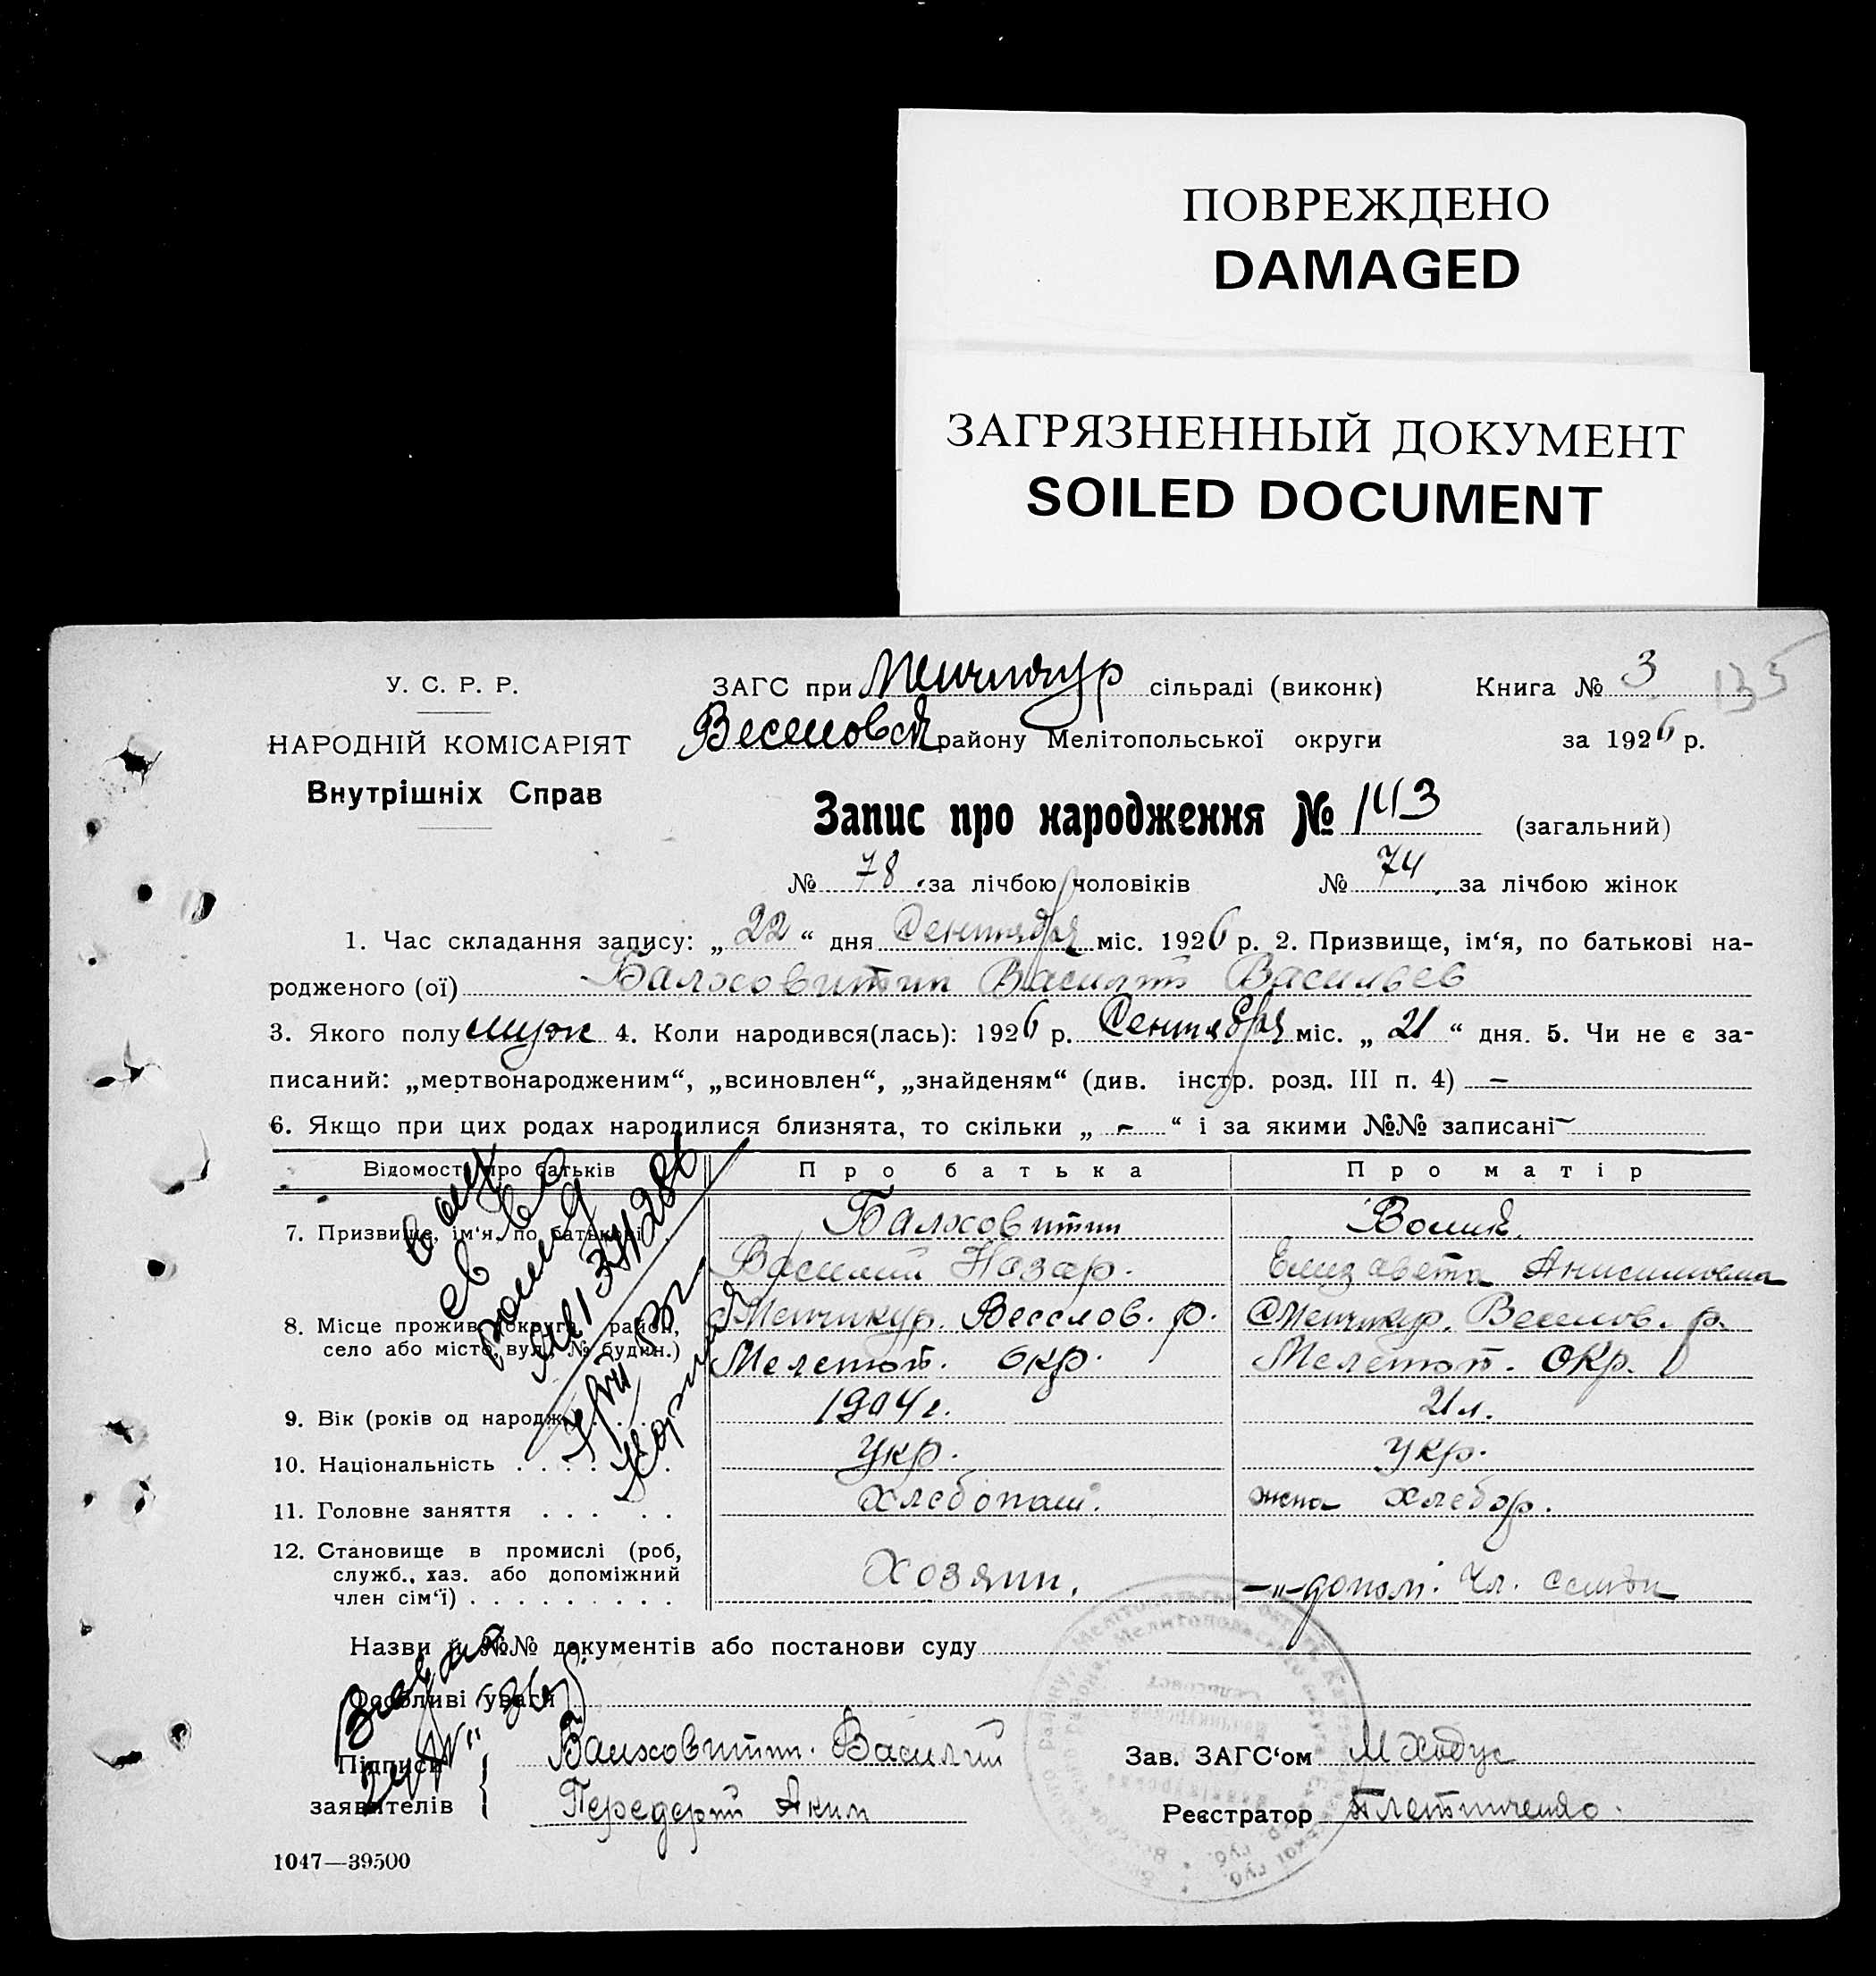 ПОВРЕЖДЕНО
DAMAGED
ЗАГРЯЗНЕННЫЙ ДОКУМЕНТ
SOILED DOCUMENT
У. С. Р. Р.
НАРОДНІЙ КОМІСАРІЯТ
Внутрішніх Справ
ЗАГС при Менчикур сільраді (виконк) Книга № 3 135
Веселовск району Мелітопольської округи за 1926 р.
Запис про народження № 143 (загальний)
№ 78 за лічбою чоловіків № 74 за лічбою жінок
1. Час складання запису: „ 22 “ дня Сентября міс. 1926 р. 2. Призвище, ім‘я, по батькові на-
родженого (ої) Балховитин Василий Васильев
3. Якого полу муж 4. Коли народився(лась): 1926 р. Сентября міс. „ 21 “ дня. 5. Чи не є за-
писаний: „мертвонародженим“, „всиновлен“, „знайденям“ (див. інстр. розд. III п. 4) –
6. Якщо при цих родах народилися близнята, то скільки „ – “ і за якими №№ записані –
Відомості про батьків Про батька Про матір
7. Призвище, ім‘я, по батькові Балховитин
Василий Назар. Елизавета Анисимовна
8. Місце прожив. (округа, район, Менчикур. Веселов. р. с Менчикур. Веселов. р.
село або місто, вул., № будин.) Мелетоп. окр. Мелетоп. окр.
9. Вік (років од народж. 1904 г. 21 л.
10. Національність . . . . . . . укр. укр.
11. Головне заняття . . . . . хлебопаш. жена хлебор.
12. Становище в промислі (роб, служб., хаз. або допоміжний член сім‘ї) . . . . . . . . . Хозяин. –„– допом. чл. семьи
Назви й №№ документів або постанови суду
Особливі уваги
Підписи Балховитин. Василий Зав. ЗАГС‘ом М Ходус
заявителів { Передерий Аким Реєстратор
1047—39500